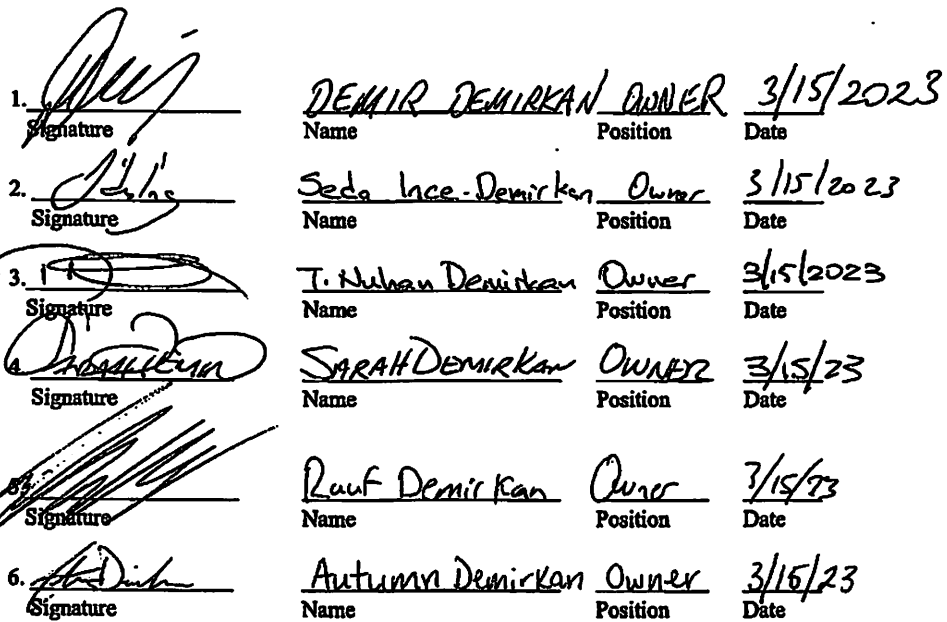 1. DEMIR DEMIRKAN OWNER 3/15/2023
Signature Name Position Date
2. Seda Ince-Demirkan Owner 3/15/2023
Signature Name Position Date
3. T. Nuhan Demirkan Owner 3/15/2023
Signature Name Position Date
4 SARAH DEMIRKAN OWNER 3/15/23
Signature Name Position Date
5. Rauf Demirkan Owner 3/15/23
Signature Name Position Date
6. Autumn Demirkan Owner 3/15/23
Signature Name Position Date